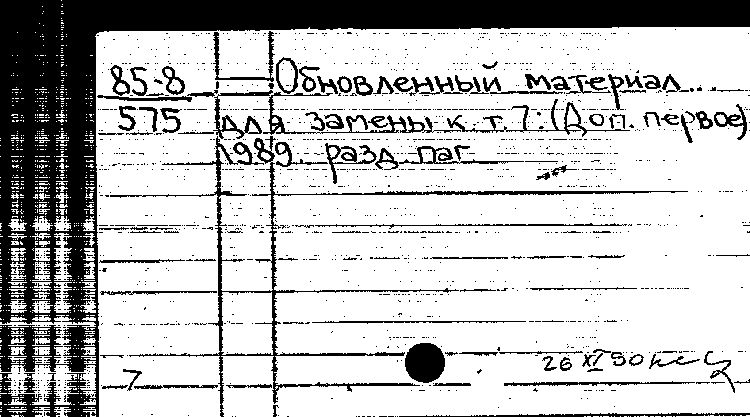 85-8 — Обновленный материал...
575 для замены к т. 7: (Доп. первое)
1989. разд. паг.
26 XI 90
7